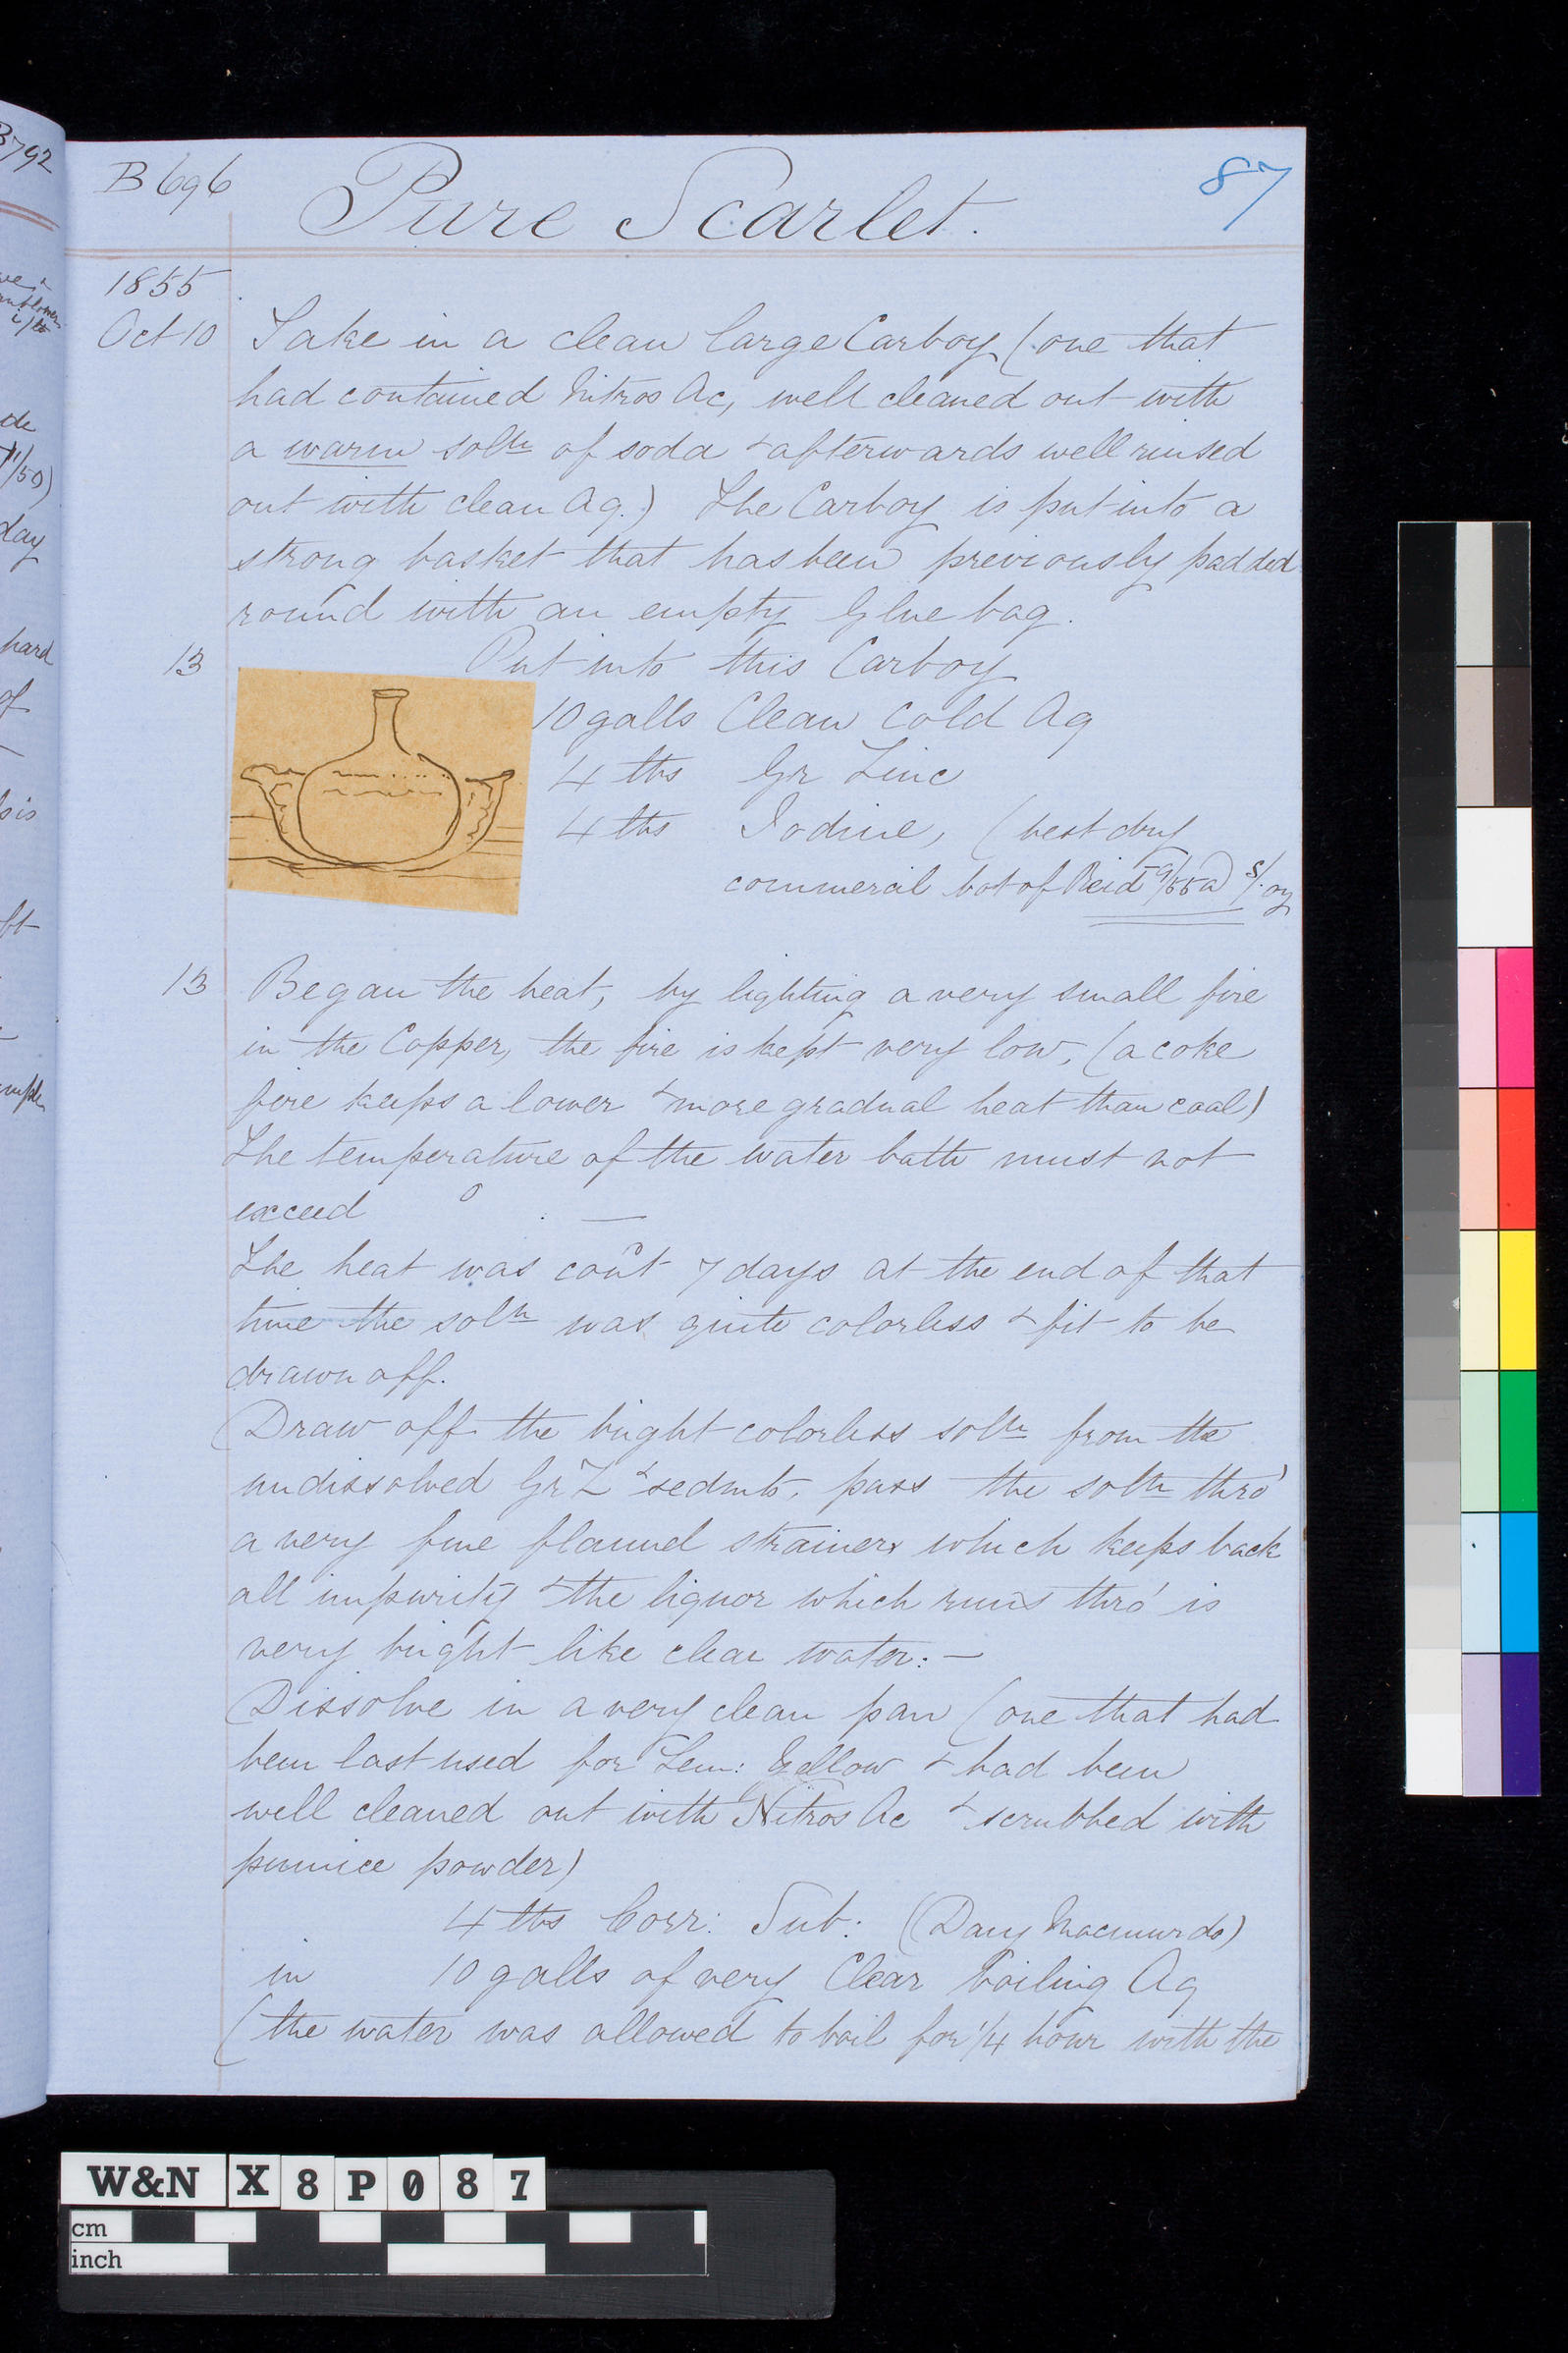 B 696
Pure Scarlet.
87
1855
Oct 10 Take in a clean large Carboy (one that
had contained Nitros Ac, well cleaned out with
a warm soln of soda & afterwards well rinsed
out with clean Aq.) The Carboy is put into a
strong basket that has been previously padded
round with an empty Glue bag.
13 Put into this Carboy
10 galls Clean Cold Aq
4 lbs Gr Zinc
4 lbs Iodine, (best dry
commercil bot of Reid 9/55 a) s/. oz
13 Began the heat, by lighting a very small fire
in the Copper, the fire is kept very low, (a coke
fire keeps a lower & more gradual heat than coal)
The temperature of the water bath must not
exceed ° . —
The heat was cont 7 days at the end of that
time the soln was quite colorless & fit to be
drawn off.
Draw off the bright colorless soln from the
undissolved Gr Z & sedmts, pass the soln thro'
a very fine flannel strainer which keeps back
all impurity & the liquor which runs thro' is
very bright like clear water: —
Dissolve in a very clean pan (one that had
been last used for Lem: Yellow & had been
well cleaned out with Nitros Ac & scrubbed with
pumice powder)
4 lbs Corr: Sub: (Davy Macmurdo)
in 10 galls of very Clear boiling Aq
(the water was allowed to boil for 1/4 hour with the
B792
de
/50)
day
hard
of
W&N X8P087
cm
inch